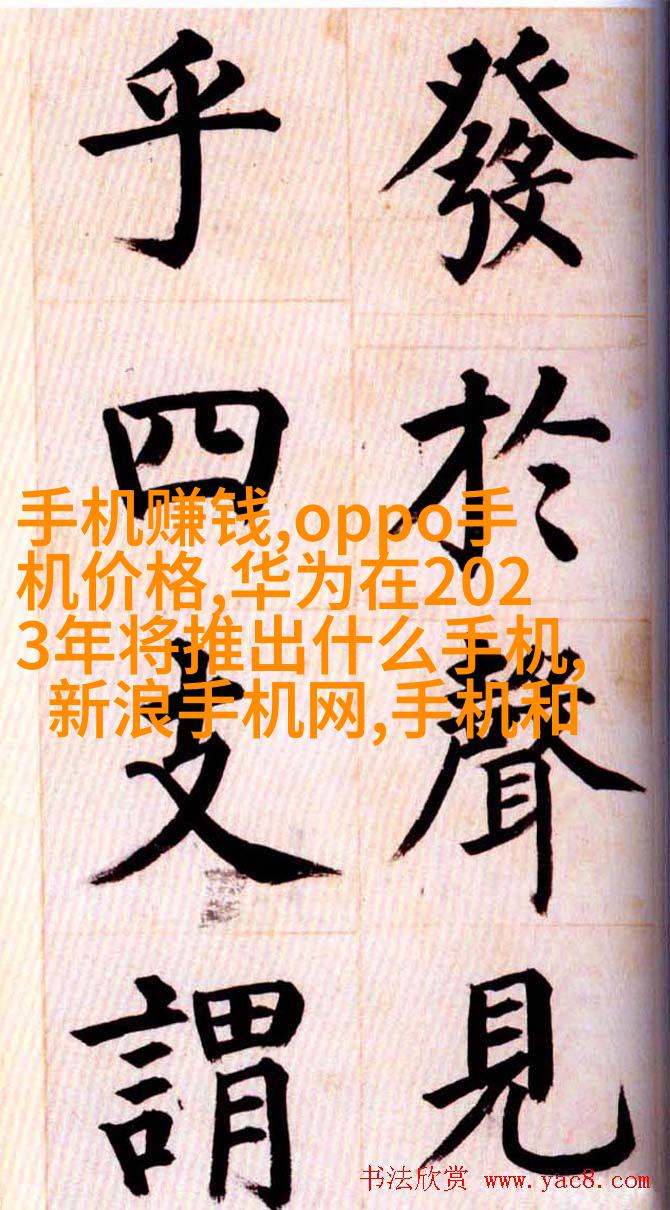 發於聲見
乎四支謂
手机赚钱,oppo手
机价格,华为在202
3年将推出什么手机,
新浪手机网,手机和
书法欣赏 www.yac8.com